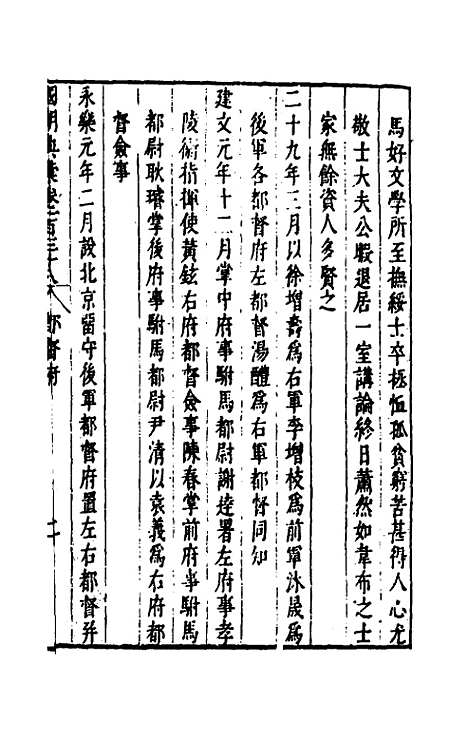 馬好文學所至撫綏士卒拯恤孤貧窮苦甚得人心尤
敬士大夫公暇退居一室講論終日蕭然如韋布之士
家無餘資人多賢之
二十九年三月以徐增壽爲右軍李增枝爲前軍沐晟爲
後軍各都督府左都督湯醴爲右軍都督同知
建文元年十二月掌中府事駙馬都尉謝達署左府事孝
陵衛指揮使黃鉉右府都督僉事陳春掌前府事駙馬
都尉耿璿掌後府事駙馬都尉尹清以袁義爲右府都
督僉事
永樂元年二月設北京留守後軍都督府置左右都督幷
國朝典彙卷一百三十八 都督府 二